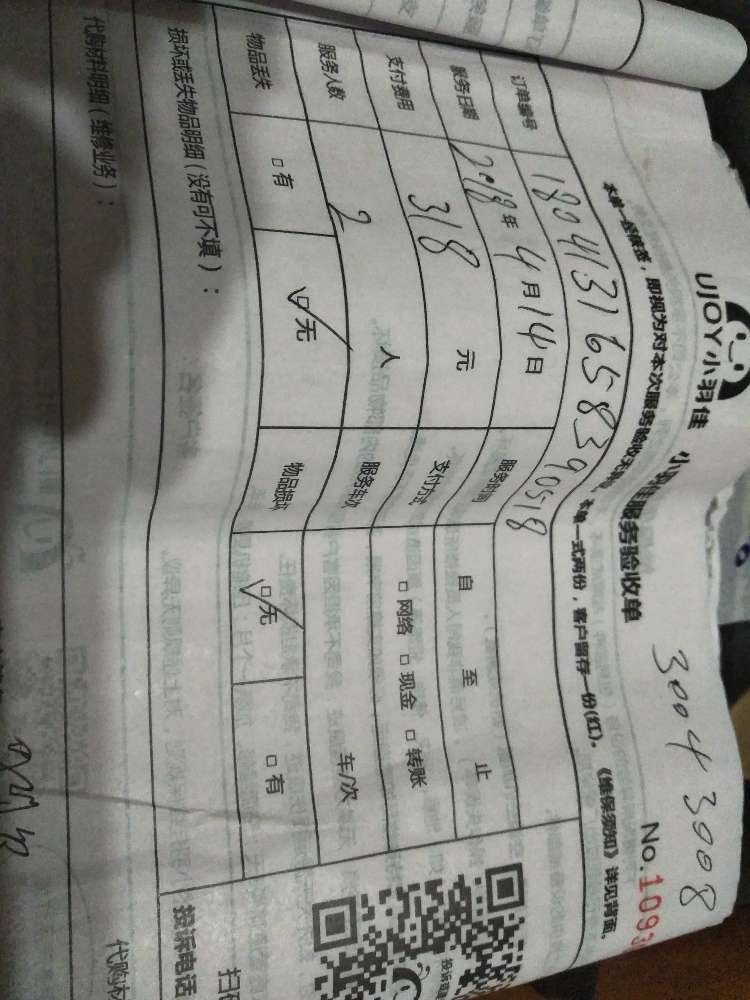 30043008
UJOY小羽佳 小羽佳服务验收单 No.1093
本单一经签签，即视为对本次服务验收无误。本单一式两份，客户留存一份(红)。《维保须知》详见背面。
订单编号 180413165839 0518
服务日期 2018年4月14日 服务时间 自 至 止
支付费用 318 元 支付方式 □网络 □现金 □转账
服务人数 2 人 服务车次 车/次
物品丢失 □有 ☑无 物品损坏 ☑无 □有
损坏或丢失物品明细（没有可不填）：
投诉电话
代购材料明细（维修业务）：
代购材